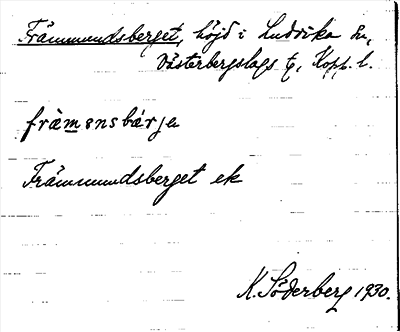 Främmundsberget, höjd i Ludvika sn,
Västerbergslags tg, Kopp. l.
främənsbárja
Främmundsberget ek
K. Söderberg 1930.